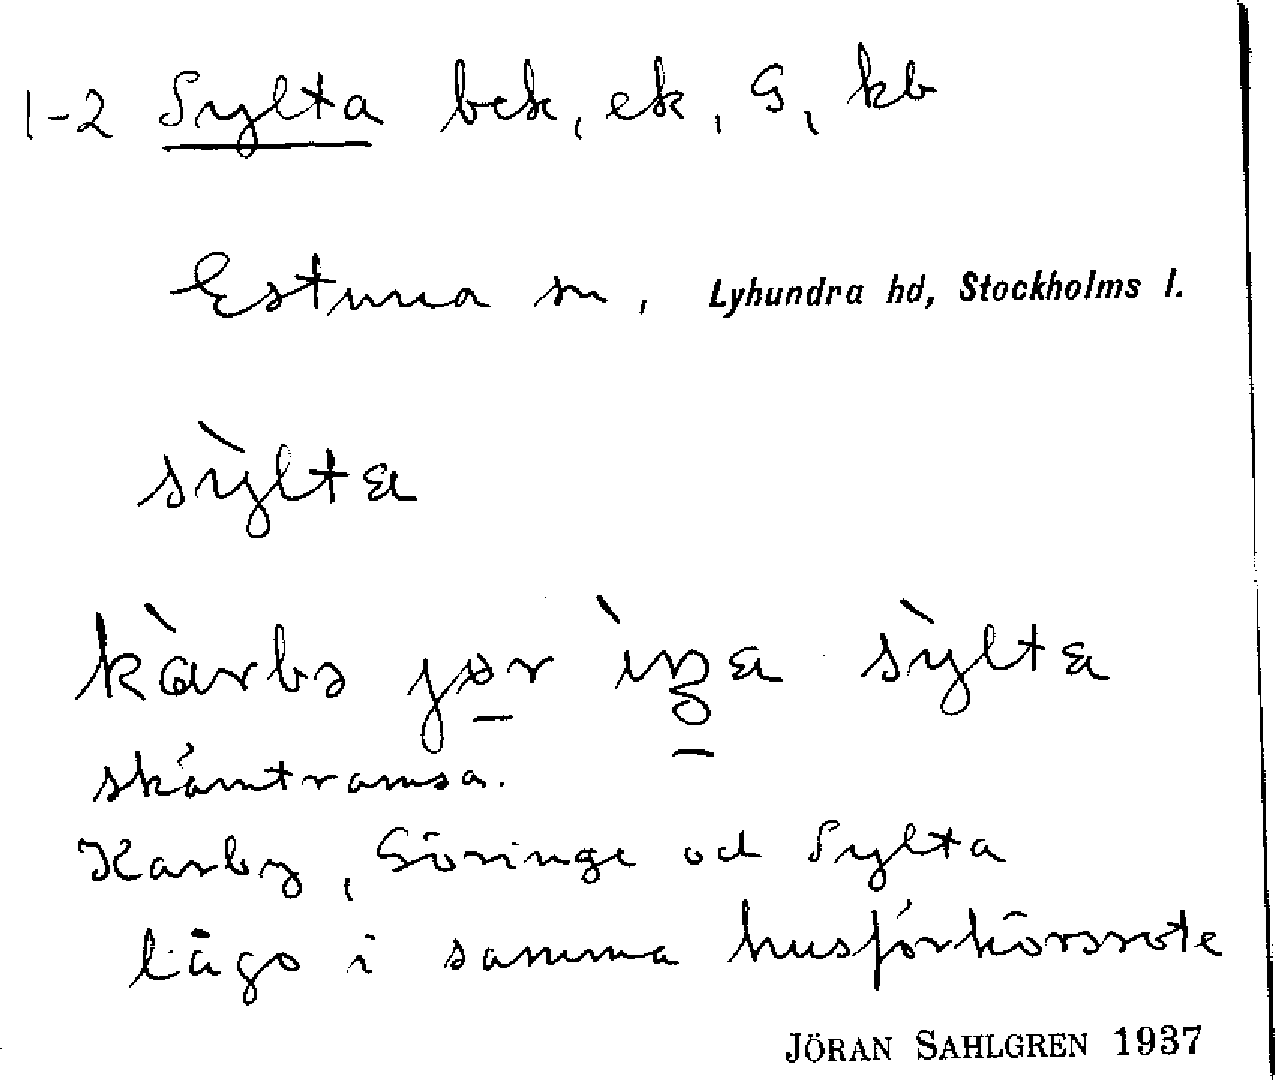 1-2 Sylta bek, ek, G, kb
Estuna sn, Lyhundra hd, Stockholms l.
sỳlta
skämtramsa.
Karby, Göringe och Sylta
lågo i samma husförhörsrote
JÖRAN SAHLGREN 1937